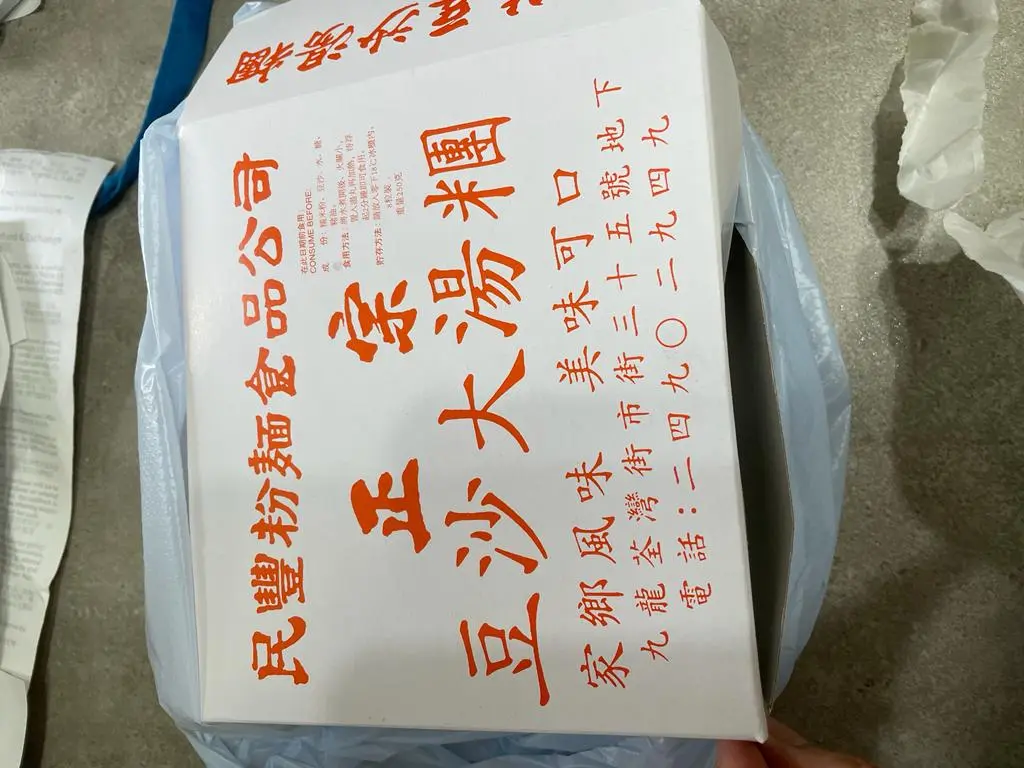 民豐粉麵食品公司
在此日期前食用:
CONSUME BEFORE:
成 份:糯米粉、豆沙、水、糖、
豬油。
食用方法:將水煮開後、火關小、
置入湯丸再加熱、待浮
起5分鐘即可食用。
貯存方法:請放入零下18℃冰櫃內、
8粒裝。
重量250克
正宗
豆沙大湯糰
家鄉風味 美味可口
九龍荃灣街市街三十五號地下
電話:二四九〇二九四九